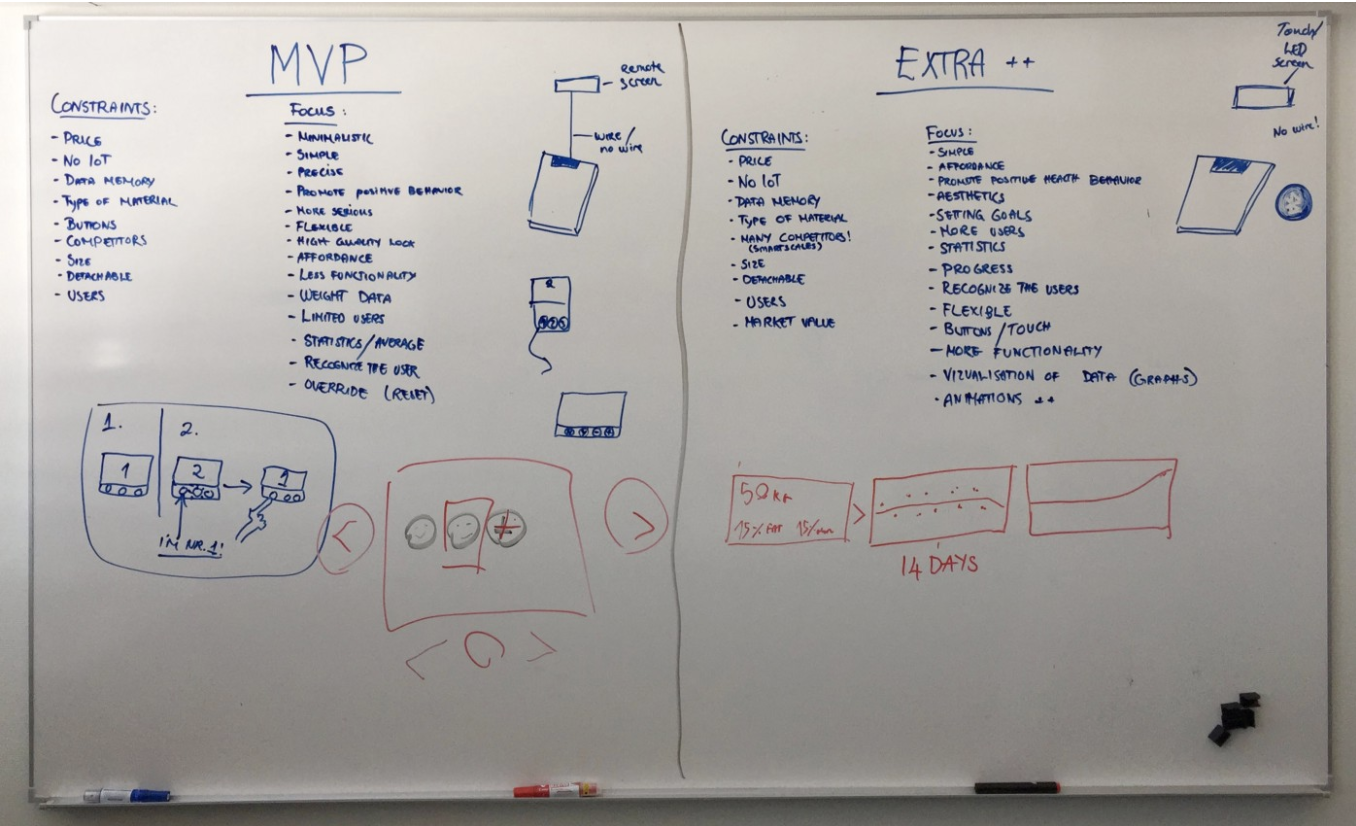 MVP
CONSTRAINTS:
- PRICE
- NO IOT
- DATA MEMORY
- TYPE OF MATERIAL
- BUTTONS
- COMPETITORS
- SIZE
- DETACHABLE
- USERS
FOCUS:
- MINIMALISTIC
- SIMPLE
- PRECISE
- PROMOTE POSITIVE BEHAVIOR
- MORE SERIOUS
- FLEXIBLE
- HIGH QUALITY LOOK
- AFFORDANCE
- LESS FUNCTIONALITY
- WEIGHT DATA
- LIMITED USERS
- STATISTICS/AVERAGE
- RECOGNIZE THE USER
- OVERRIDE (RESET)
remote
screen
wire/
no wire
2
1.
2.
1
2
1
I'M NR. 1!
<
>
< >
EXTRA ++
CONSTRAINTS:
- PRICE
- NO IOT
- DATA MEMORY
- TYPE OF MATERIAL
- MANY COMPETITORS!
(SMARTSCALES)
- SIZE
- DETACHABLE
- USERS
- MARKET VALUE
FOCUS:
- SIMPLE
- AFFORDANCE
- PROMOTE POSITIVE HEALTH BEHAVIOR
- AESTHETICS
- SETTING GOALS
- MORE USERS
- STATISTICS
- PROGRESS
- RECOGNIZE THE USERS
- FLEXIBLE
- BUTTONS/TOUCH
- MORE FUNCTIONALITY
- VIZUALISATION OF DATA (GRAPHS)
- ANIMATIONS ++
Touch/
LED
screen
No wire!
15% FAT 15%
>
14 DAYS